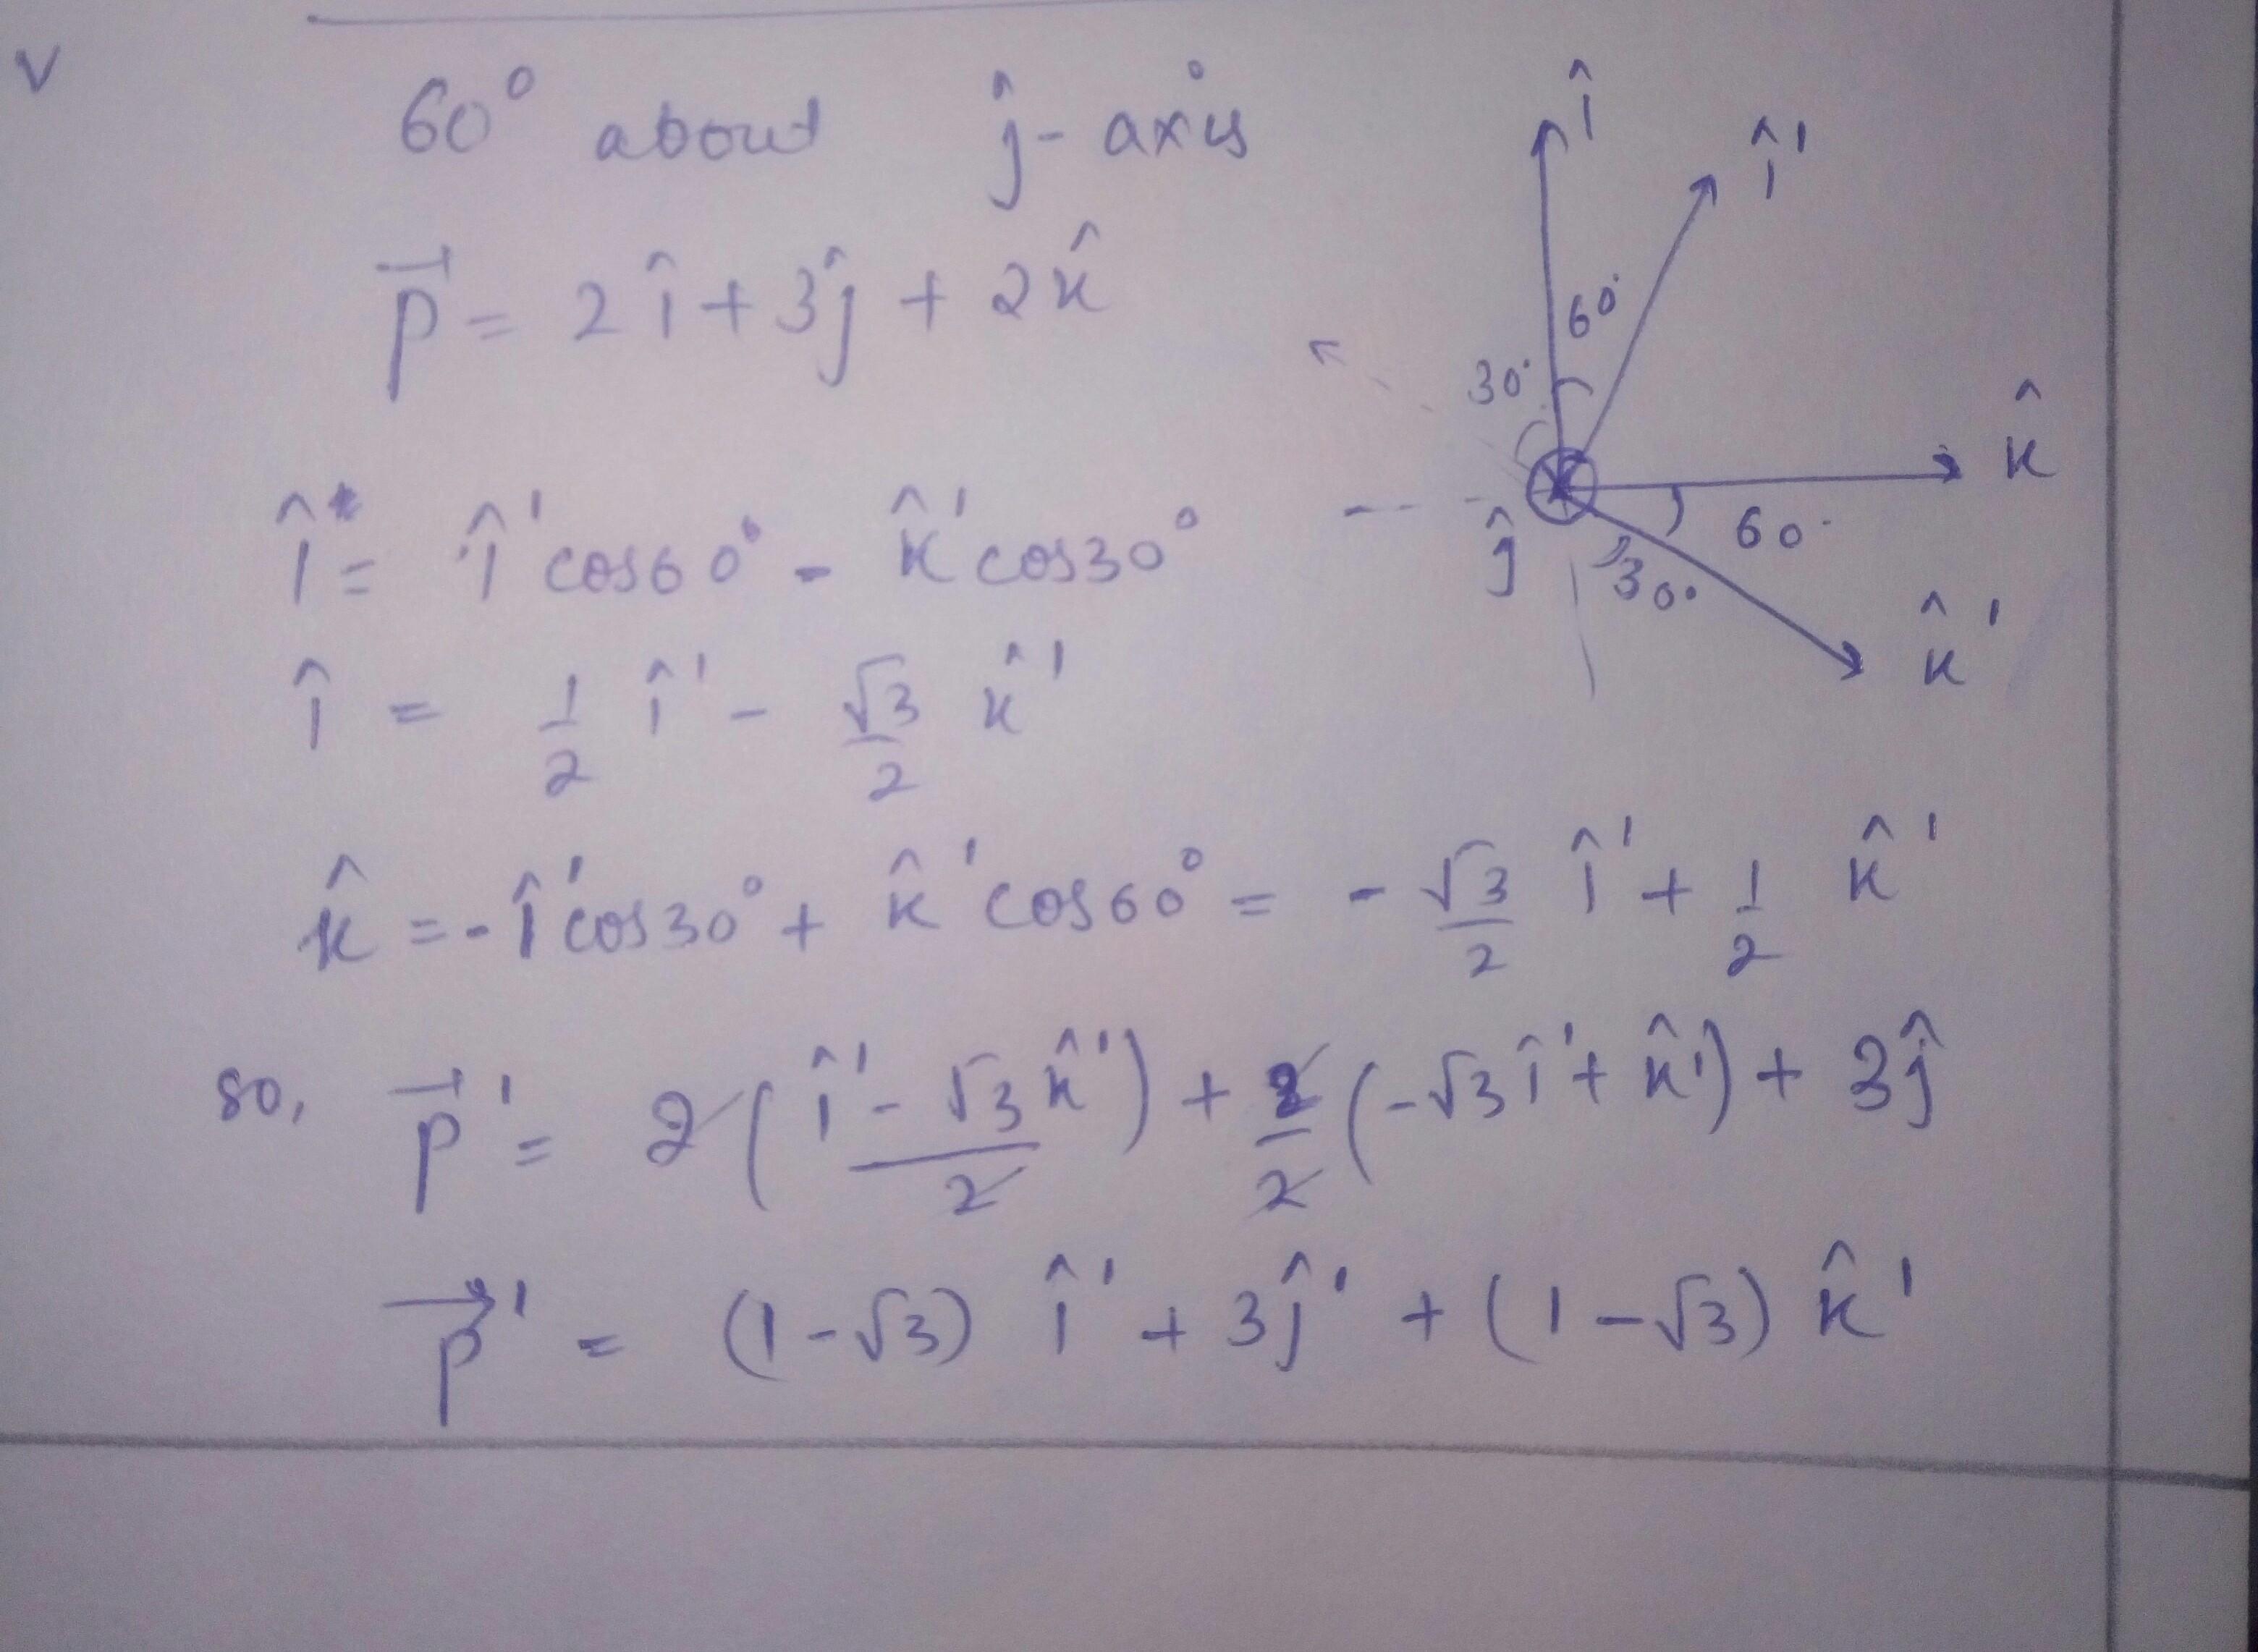 v
60° about ĵ-axis
p⃗ = 2î + 3ĵ + 2k̂
î = î' cos60° - k̂' cos30°
î = 1/2 î' - √3/2 k̂'
k̂ = -î' cos30° + k̂' cos60° = -√3/2 î' + 1/2 k̂'
so, p⃗' = 2(î' - √3k̂')/2 + 2/2 (-√3î' + k̂') + 3ĵ
p⃗' = (1-√3) î' + 3ĵ' + (1-√3) k̂'
î
î'
60°
30°
k̂
ĵ
60°
30°
k̂'